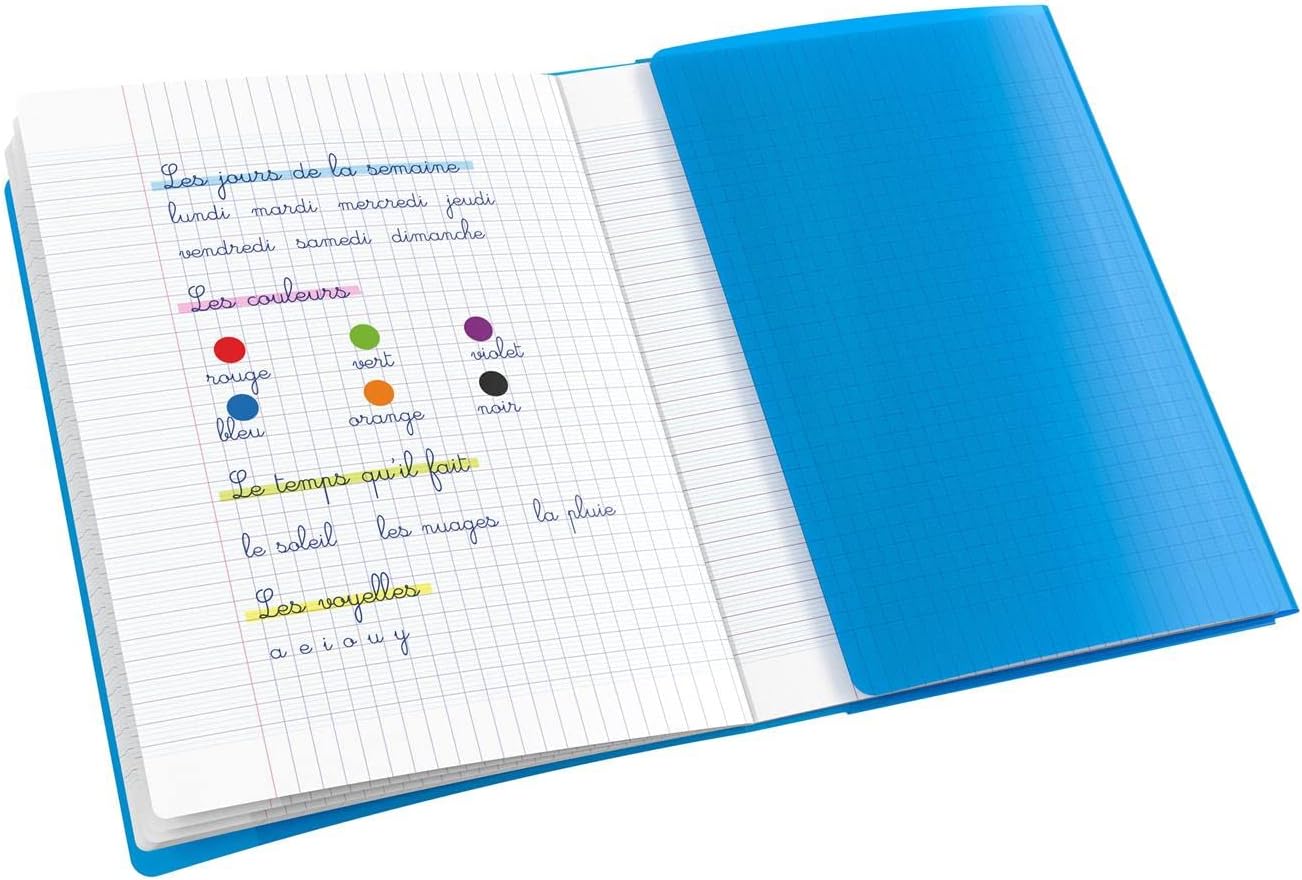 Les jours de la semaine
lundi mardi mercredi jeudi
vendredi samedi dimanche
Les couleurs
rouge vert violet
bleu orange noir
Le temps qu'il fait
le soleil les nuages la pluie
Les voyelles
a e i o u y